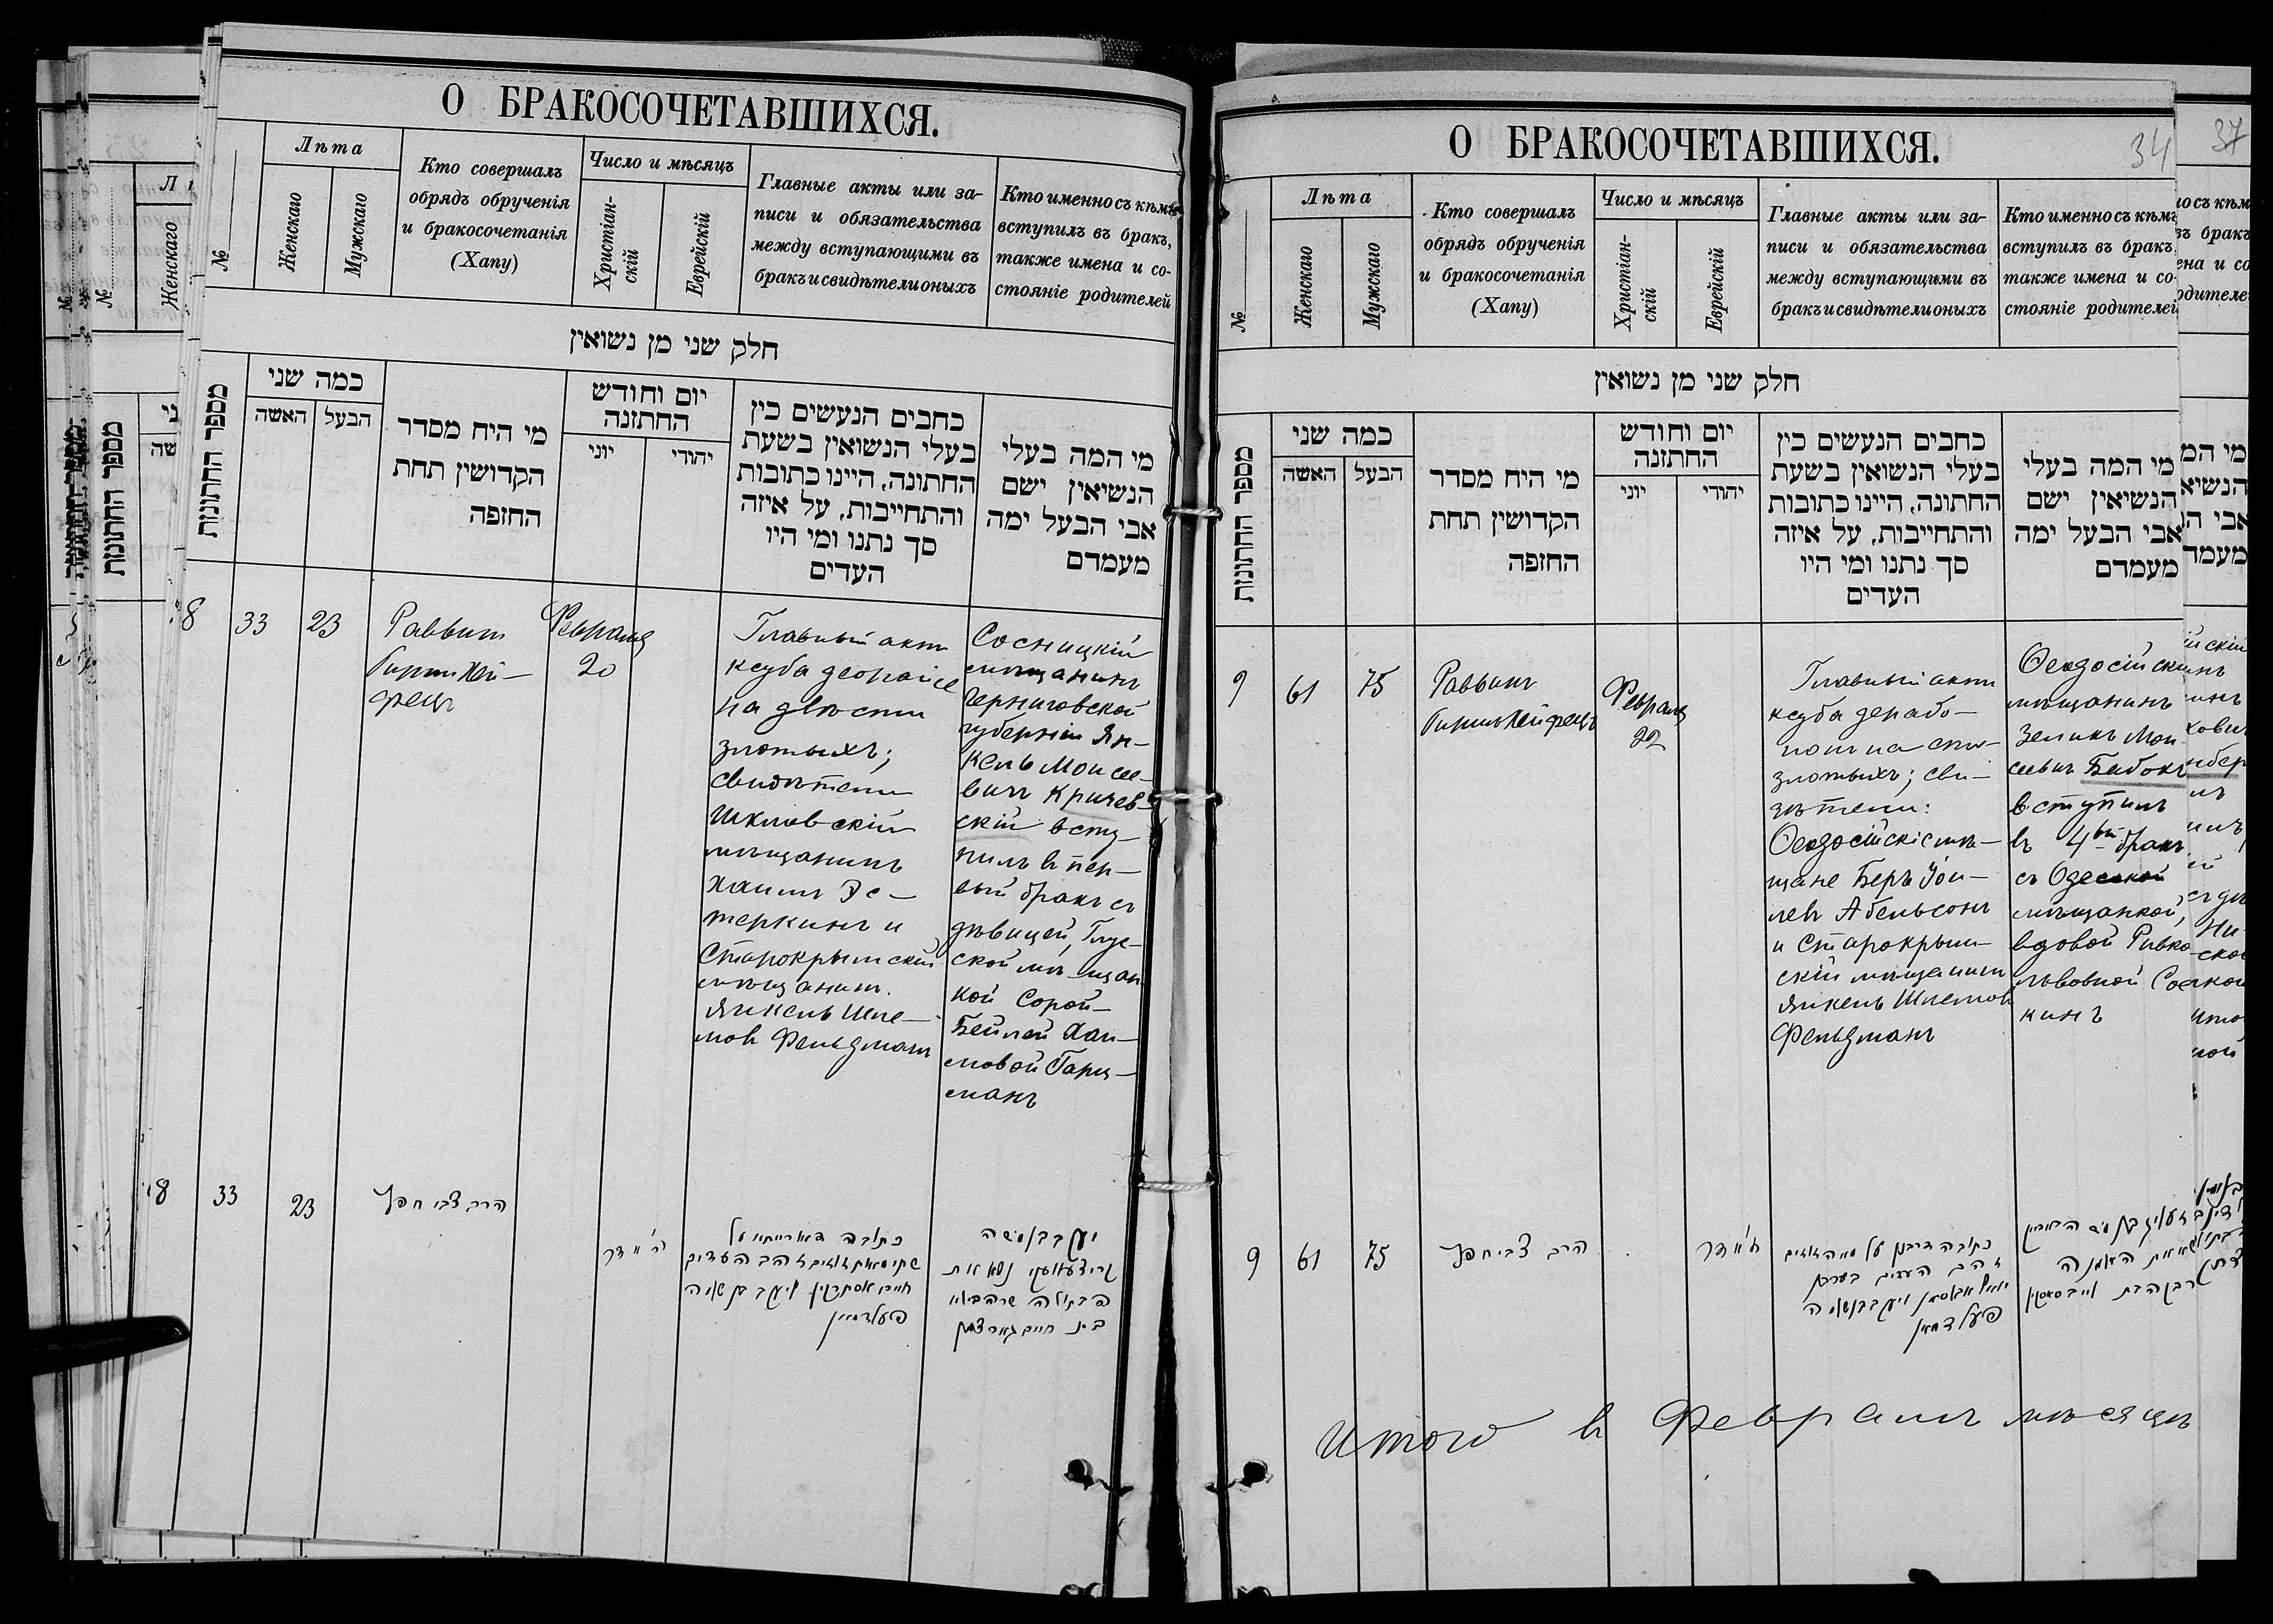 О БРАКОСОЧЕТАВШИХСЯ.
№
Лѣта
Женскаго
Мужскаго
Кто совершалъ
обрядъ обрученія
и бракосочетанія
(Хапу)
Число и мѣсяцъ
Христіан-
скій
Еврейскій
Главные акты или за-
писи и обязательства
между вступающими въ
бракъ и свидѣтели оныхъ
Кто именно съ кѣмъ
вступилъ въ бракъ,
также имена и со-
стояніе родителей
חלק שני מן נשואין
מספר החתונות
כמה שני
האשה
הבעל
מי היח מסדר
הקדושין תחת
החזפה
יום וחודש
החתזנה
יוני
יהודי
כחבים הנעשים כין
בעלי הנשואין בשעת
החתונה, היינו כתובות
והתחייבות, על איזה
סך נתנו ומי היו
העדים
מי המה בעלי
הנשיאין ישם
אבי הבעל ימה
מעמדם
8
33
23
Раввинъ
Гиршъ Хей-
фецъ
Февраля
20
Главный актъ
ксуба деорайсе
на двѣсти
злотыхъ;
свидѣтели
Шкловскій
мѣщанинъ
Хаимъ Эс-
теркинъ и
Старокрымскій
мѣщанинъ
Янкель Шле-
мов Фельдманъ
Сосницкій
мѣщанинъ
Черниговской
губерніи Ян-
кель Моисее-
вичъ Кричев-
скій всту-
пилъ въ пер-
вый бракъ съ
дѣвицей,
ской мѣщан
кой Сорой-
Бейлей Хаи-
мовой Гарц-
манъ
8
33
23
הרב צבי חפץ
יעקב בן משה
О БРАКОСОЧЕТАВШИХСЯ.
34
37
№
Лѣта
Женскаго
Мужскаго
Кто совершалъ
обрядъ обрученія
и бракосочетанія
(Хапу)
Число и мѣсяцъ
Христіан-
скій
Еврейскій
Главные акты или за-
писи и обязательства
между вступающими въ
бракъ и свидѣтели оныхъ
Кто именно съ кѣмъ
вступилъ въ бракъ
также имена и со-
стояніе родителей
חלק שני מן נשואין
מספר החתונות
כמה שני
האשה
הבעל
מי היח מסדר
הקדושין תחת
החזפה
יום וחודש
החתזנה
יוני
יהודי
כחבים הנעשים כין
בעלי הנשואין בשעת
החתונה, היינו כתובות
והתחייבות, על איזה
סך נתנו ומי היו
העדים
מי המה בעלי
הנשיאין ישם
אבי הבעל ימה
מעמדם
9
61
75
Раввинъ
Гиршъ Хейфецъ
Февраля
22
Главный актъ
ксуба дерабо-
нонъ на сто
злотыхъ; сви-
дѣтели:
Ѳеодосійскіе мѣ-
щане Беръ Іои-
левъ Абельсонъ
и Старокрым-
скій мѣщанинъ
Янкель Шлемов
Фельдманъ
Ѳеодосійскій
мѣщанинъ
Зеликъ Мои-
сеевичъ Бабокъ
вступилъ
въ 4ый бракъ
съ Одесской
мѣщанкой,
вдовой Ривко
Львовной Сос
кинъ
9
61
75
הרב צבי חפץ
Итого въ Февралѣ мѣсяцѣ